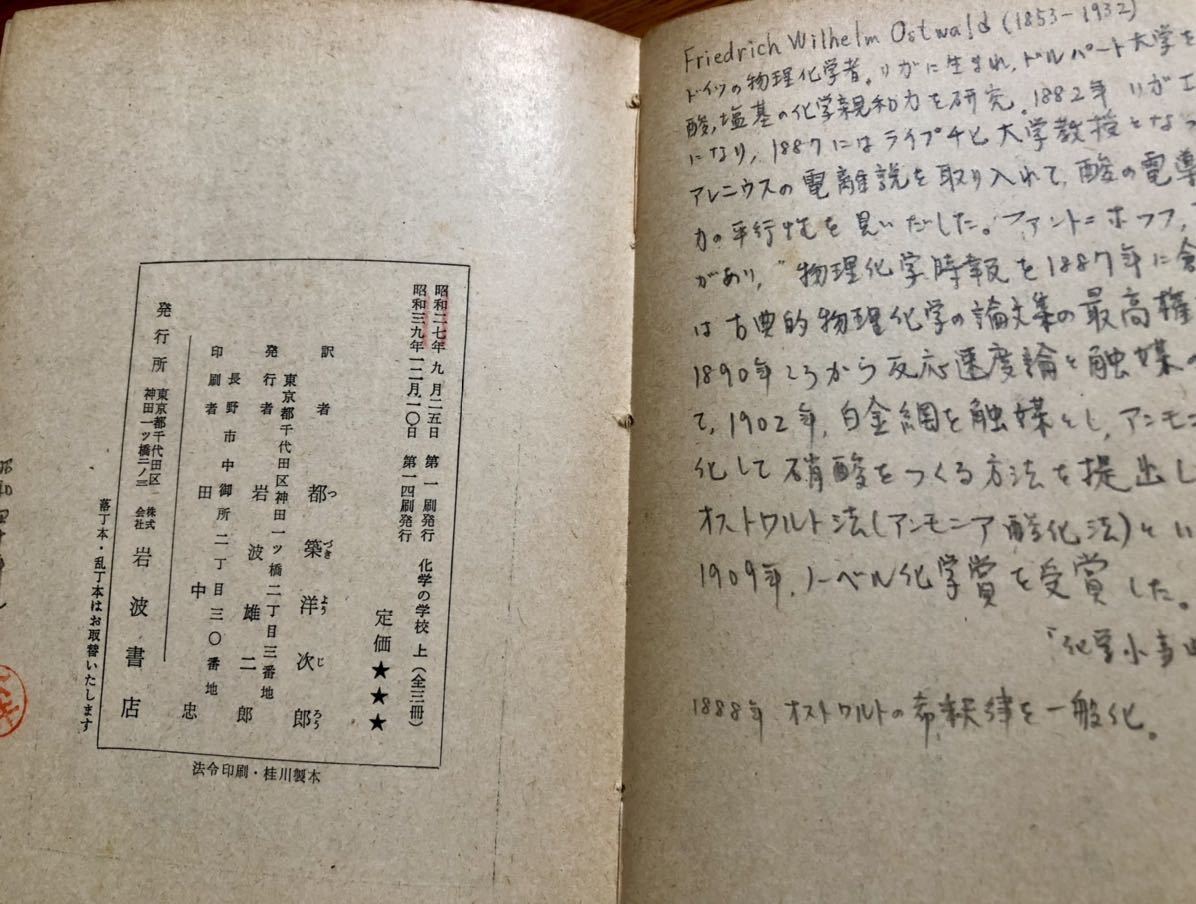 昭和二七年 九月二五日 第一刷発行
昭和三九年一二月一〇日 第一四刷発行
化学の学校 上（全三冊）
定価★★★
訳者 都築洋次郎
つ づき よう じ ろう
東京都千代田区神田一ツ橋二丁目三番地
発行者 岩波雄二郎
長野市中御所二丁目三〇番地
印刷者 田中忠
発行所 東京都千代田区神田一ツ橋二ノ三 株式会社 岩波書店
落丁本・乱丁本はお取替いたします
法令印刷・桂川製本
Friedrich Wilhelm Ostwald (1853-1932)
ドイツの物理化学者。リガに生まれ、ドルパート大学を
酸,塩基の化学親和力を研究、1882年 リガエ
になり、1887にはライプチヒ大学教授となっ
アレニウスの電離説を取り入れて、酸の電導
力の平行性を見いだした。ファント=ホッフ,
があり,"物理化学時報を1887年に創
は古典的物理化学の論文集の最高権
1890年ころから反応速度論と触媒の
て、1902年, 白金網を触媒とし, アンモニ
化して硝酸をつくる方法を提出し
オストワルト法(アンモニア酸化法)とい
1909年, ノーベル化学賞を受賞した。
「化学小事典
1888年 オストワルトの希釈律を一般化。